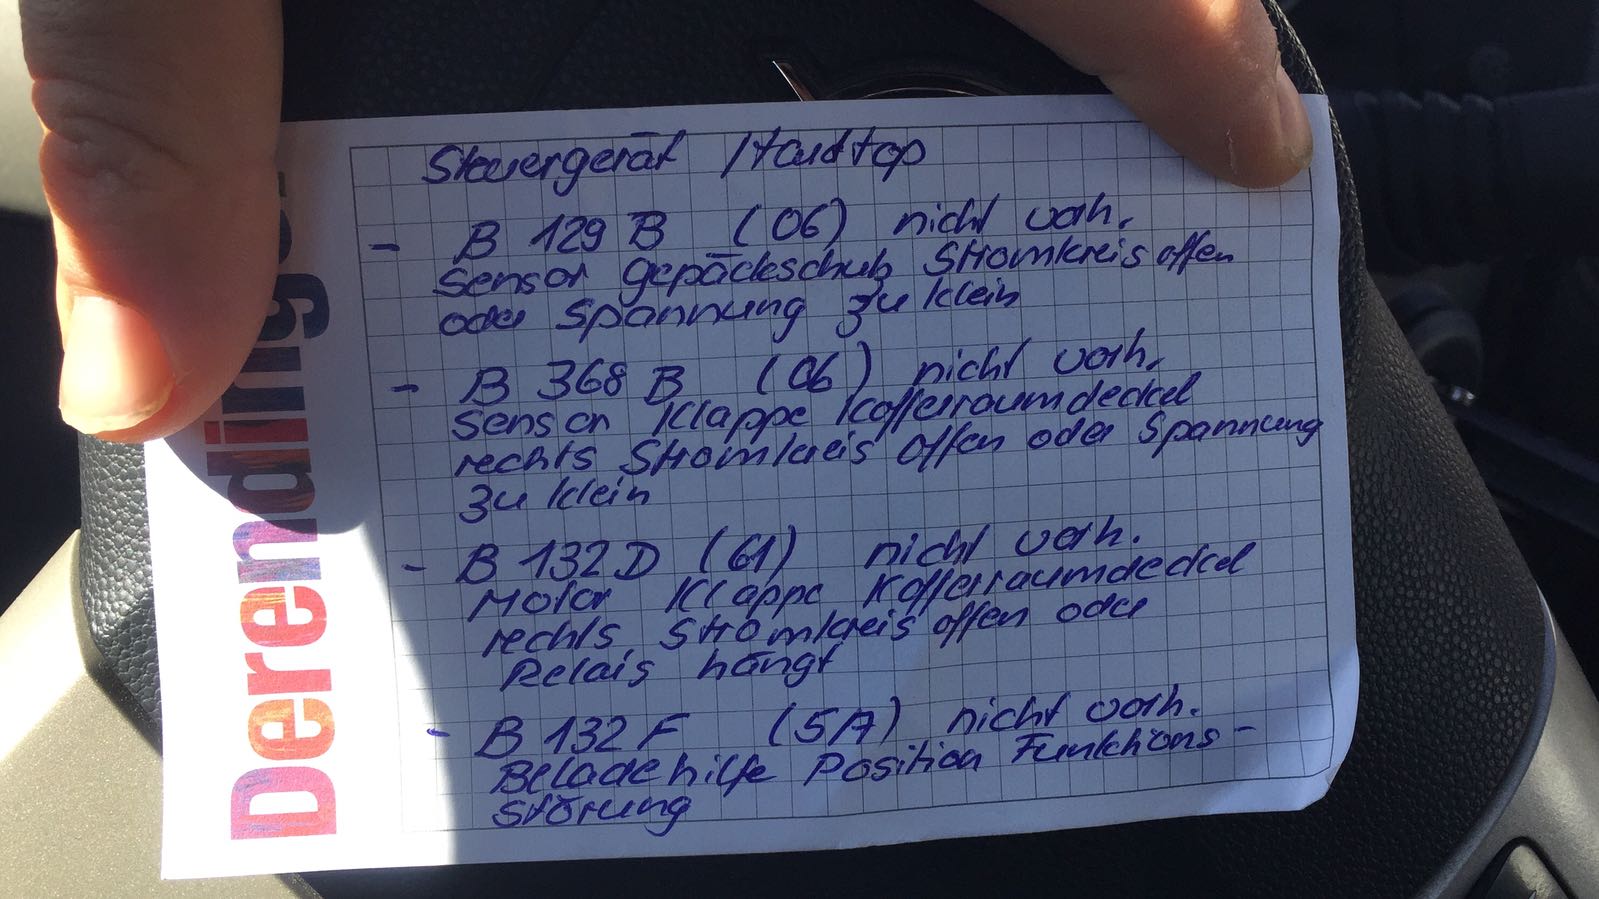 Derendinger
Steuergerät Hardtop
- B 129 B (06) nicht vorh.
Sensor Gepäckschub Stromkreis offen
oder Spannung zu klein
- B 368 B (06) nicht vorh.
Sensor Klappe Kofferraumdeckel
rechts Stromkreis offen oder Spannung
zu klein
- B 132 D (61) nicht vorh.
Motor Klappe Kofferraumdeckel
rechts Stromkreis offen oder
Relais hängt
- B 132 F (5A) nicht vorh.
Beladehilfe Position Funktions-
störung